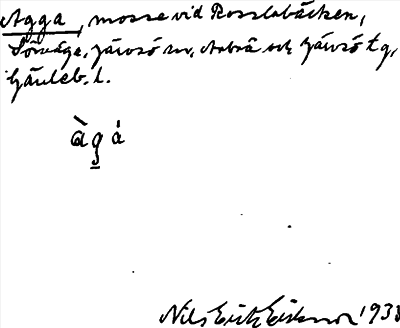 Agga, mosse vid Rosslabäcken,
Sörväge, Järvsö sn, Arbrå och Järvsö tg,
Gävleb. l.
àg̲á
Nils Erik Eriksson 1933